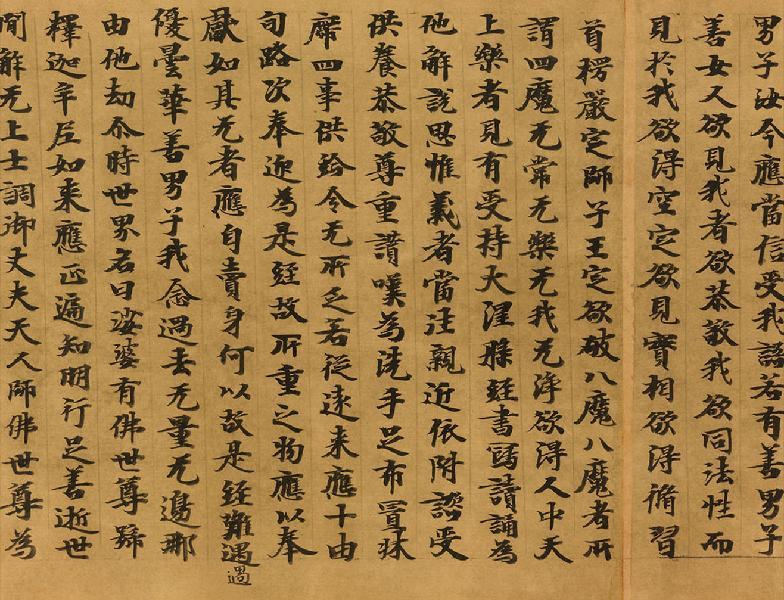 男子汝今應當信受我語若有善男子
善女人欲見我者欲恭敬我欲同法性而
見於我欲得空定欲見實相欲得脩習
首楞嚴定師子王定欲破八魔八魔者所
謂四魔无常无樂无我无淨欲得人中天
上樂者見有受持大涅槃經書寫讀誦為
他解說思惟義者當往親近依附諮受
供養恭敬尊重讚嘆為洗手足布置牀
席四事供給令无所乏若從遠來應十由
旬路次奉迎為是經故所重之物應以奉
獻如其无者應自賣身何以故是經難遇
過
優曇華善男子我念過去无量无邊那
由他劫尒時世界名曰娑婆有佛世尊號
釋迦牟尼如来應正遍知明行足善逝世
間解无上士調御丈夫天人師佛世尊為